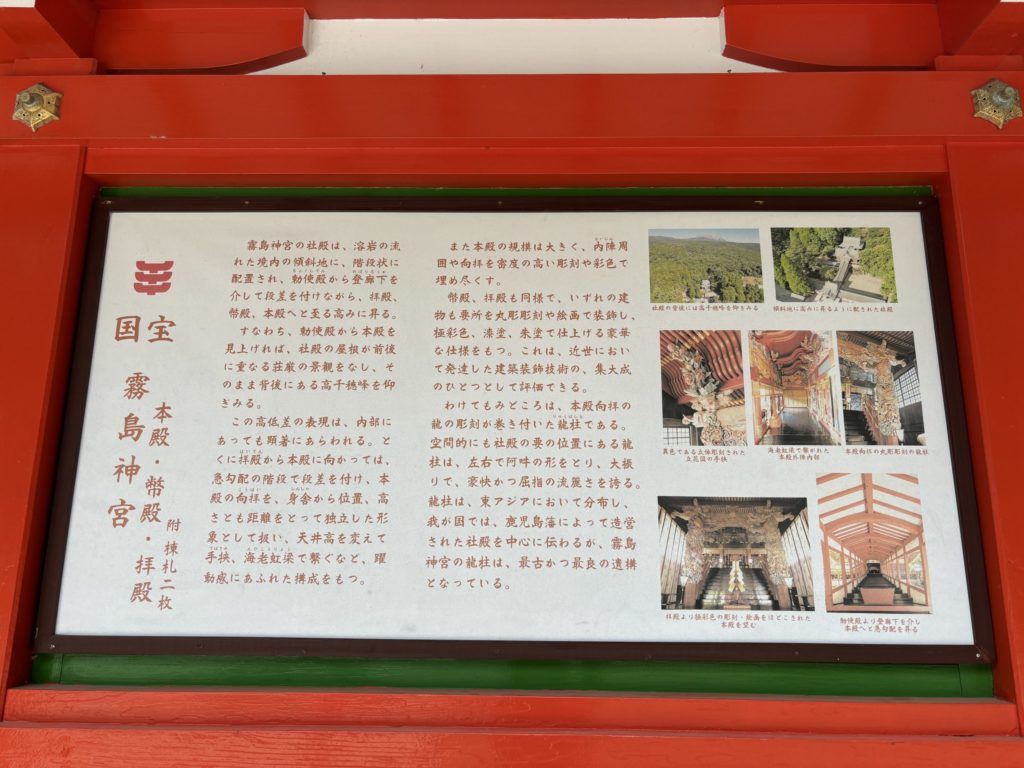 国宝
霧島神宮
本殿・幣殿・拝殿
附 棟札二枚
霧島神宮の社殿は、溶岩の流
れた境内の傾斜地に、階段状に
配置され、勅使殿から登廊下を
介して段差を付けながら、拝殿、
幣殿、本殿へと至る高みに昇る。
すなわち、勅使殿から本殿を
見上げれば、社殿の屋根が前後
に重なる荘厳の景観をなし、そ
のまま背後にある高千穂峰を仰
ぎみる。
この高低差の表現は、内部に
あっても顕著にあらわれる。と
くに拝殿から本殿に向かっては、
急勾配の階段で段差を付け、本
殿の向拝を、身舎から位置、高
さとも距離をとって独立した形
象として扱い、天井高を変えて
手挾、海老虹梁で繋ぐなど、躍
動感にあふれた構成をもつ。
また本殿の規模は大きく、内陣周
囲や向拝を密度の高い彫刻や彩色で
埋め尽くす。
幣殿、拝殿も同様で、いずれの建
物も要所を丸彫彫刻や絵画で装飾し、
極彩色、漆塗、朱塗で仕上げる豪華
な仕様をもつ。これは、近世におい
て発達した建築装飾技術の、集大成
のひとつとして評価できる。
わけてもみどころは、本殿向拝の
龍の彫刻が巻き付いた龍柱である。
空間的にも社殿の要の位置にある龍
柱は、左右で阿吽の形をとり、大振
りで、豪快かつ屈指の流麗さを誇る。
龍柱は、東アジアにおいて分布し、
我が国では、鹿児島藩によって造営
された社殿を中心に伝わるが、霧島
神宮の龍柱は、最古かつ最良の遺構
となっている。
社殿の背後には高千穂峰を仰ぎみる
傾斜地に高みに昇るように配された社殿
異色である立体彫刻された
立花図の手挾
海老虹梁で繋がれた
本殿外陣内部
本殿向拝の丸彫彫刻の龍柱
拝殿より極彩色の彫刻・絵画をほどこされた
本殿を望む
勅使殿より登廊下を介し
本殿へと急勾配を昇る